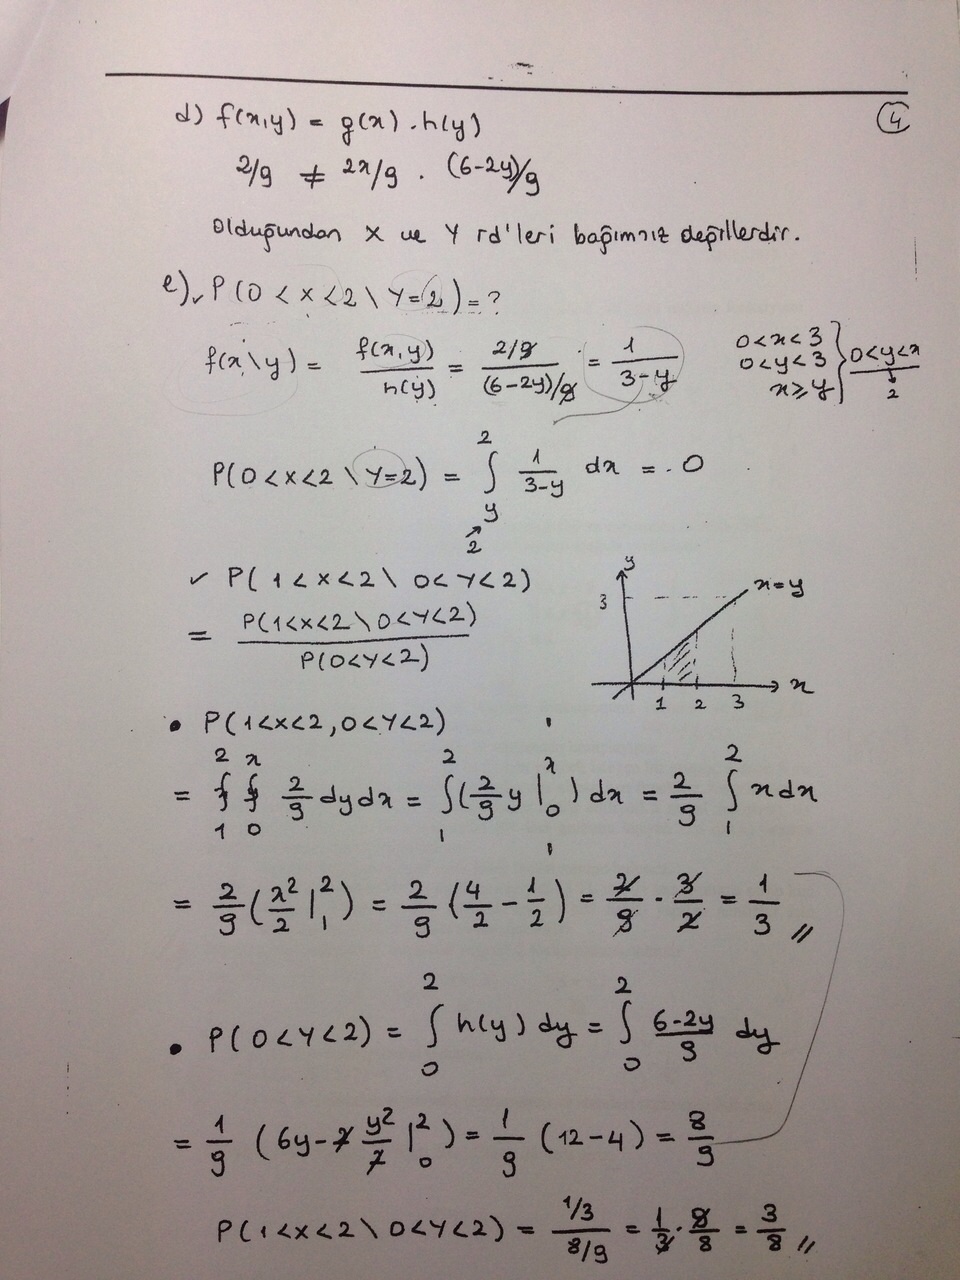 4
d) f(x,y) = g(x) . h(y)
2/9 ≠ 2x/9 . (6-2y)/9
Olduğundan X ve Y rd'leri bağımsız değillerdir.
e) ✓ P(0<X<2 \ Y=2) = ?
f(x\y) = f(x,y)/h(y) = (2/9)/((6-2y)/9) = 1/(3-y)
0<x<3
0<y<3
x≥y } 0<y<x
2
P(0<X<2 \ Y=2) = ∫_y^2 1/(3-y) dx = 0
2
✓ P(1<X<2 \ 0<Y<2)
= P(1<X<2 \ 0<Y<2) / P(0<Y<2)
y
x=y
3
1 2 3 x
• P(1<X<2, 0<Y<2)
= ∫_1^2 ∫_0^x 2/9 dy dx = ∫_1^2 (2/9 y |_0^x) dx = 2/9 ∫_1^2 x dx
= 2/9 (x²/2 |_1^2) = 2/9 (4/2 - 1/2) = 2/9 . 3/2 = 1/3 //
• P(0<Y<2) = ∫_0^2 h(y) dy = ∫_0^2 (6-2y)/9 dy
= 1/9 (6y - 2 y²/2 |_0^2) = 1/9 (12-4) = 8/9
P(1<X<2 \ 0<Y<2) = (1/3)/(8/9) = 1/3 . 9/8 = 3/8 //